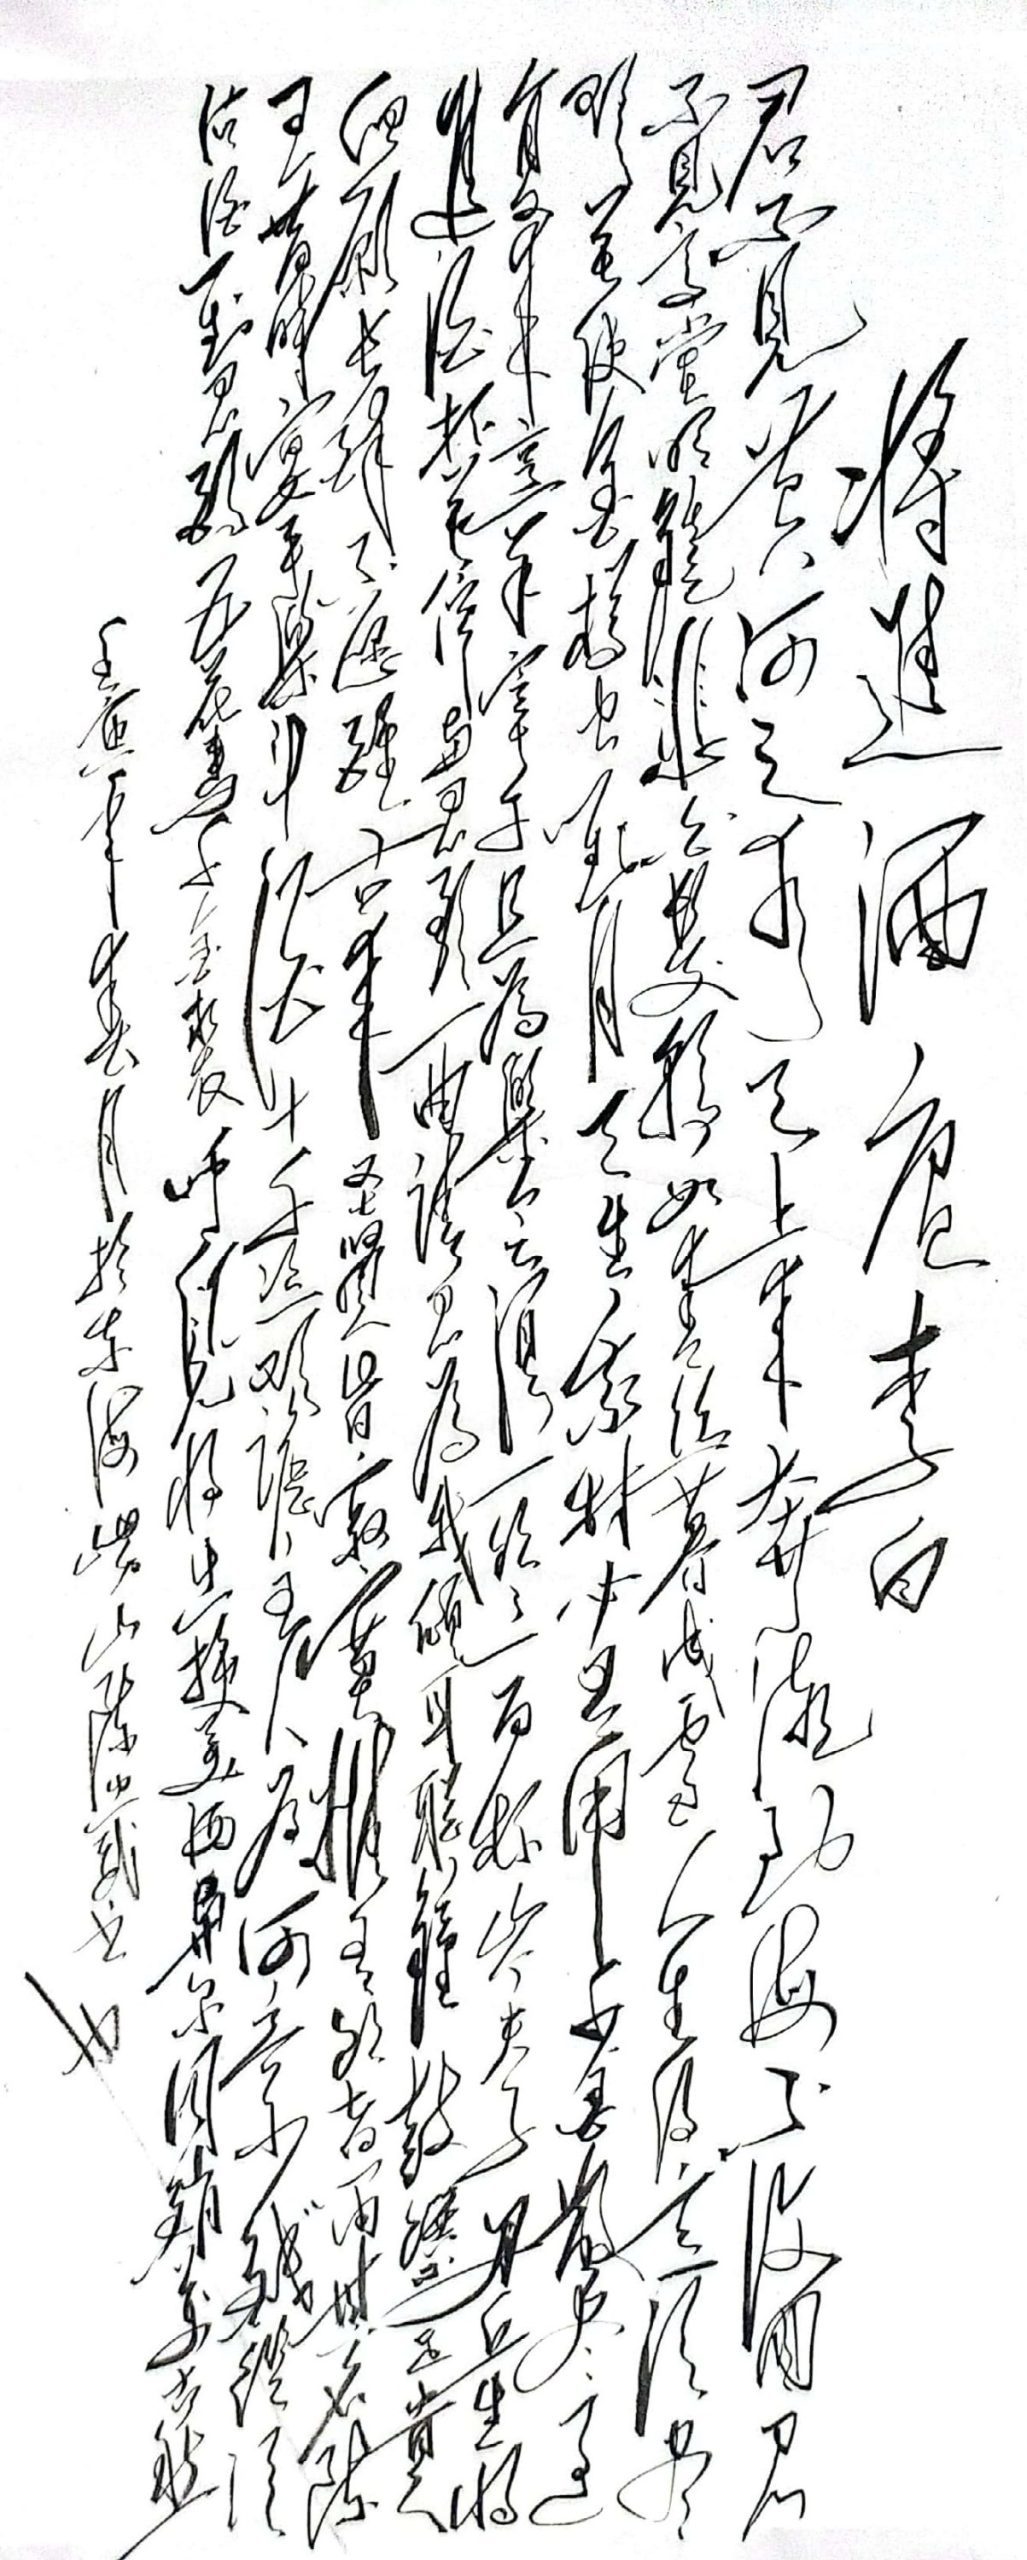 將進酒 唐 李白
君不見黃河之水天上來奔流到海不復回君
不見高堂明鏡悲白髮朝如青絲暮成雪人生得意須盡
歡莫使金樽空對月天生我材必有用千金散盡還
復來烹羊宰牛且為樂會須一飲三百杯岑夫子丹丘生將
進酒杯莫停與君歌一曲請君為我傾耳聽鐘鼓饌玉不足貴
但願長醉不復醒古來聖賢皆寂寞惟有飲者留其名陳
王昔時宴平樂斗酒十千恣歡謔主人為何言少錢徑須
沽酒對君酌五花馬千金裘呼兒將出換美酒與爾同銷萬古愁
壬寅年春月於東海嶗山陳書